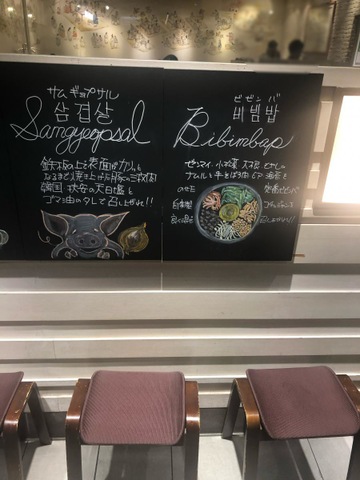 サムギョプサル
삼겹살
Sangyeopsal
鉄板の上で表面がカリッと
なるまで焼き上げた豚の三枚肉
韓国 扶安の天日塩と
ゴマ油のタレで召し上がれ!!
ビビンバ
비빔밥
Bibimbap
ゼンマイ・小松菜・大根・もやしの
ナムルと
のせた
自家製
召し上がれ!!